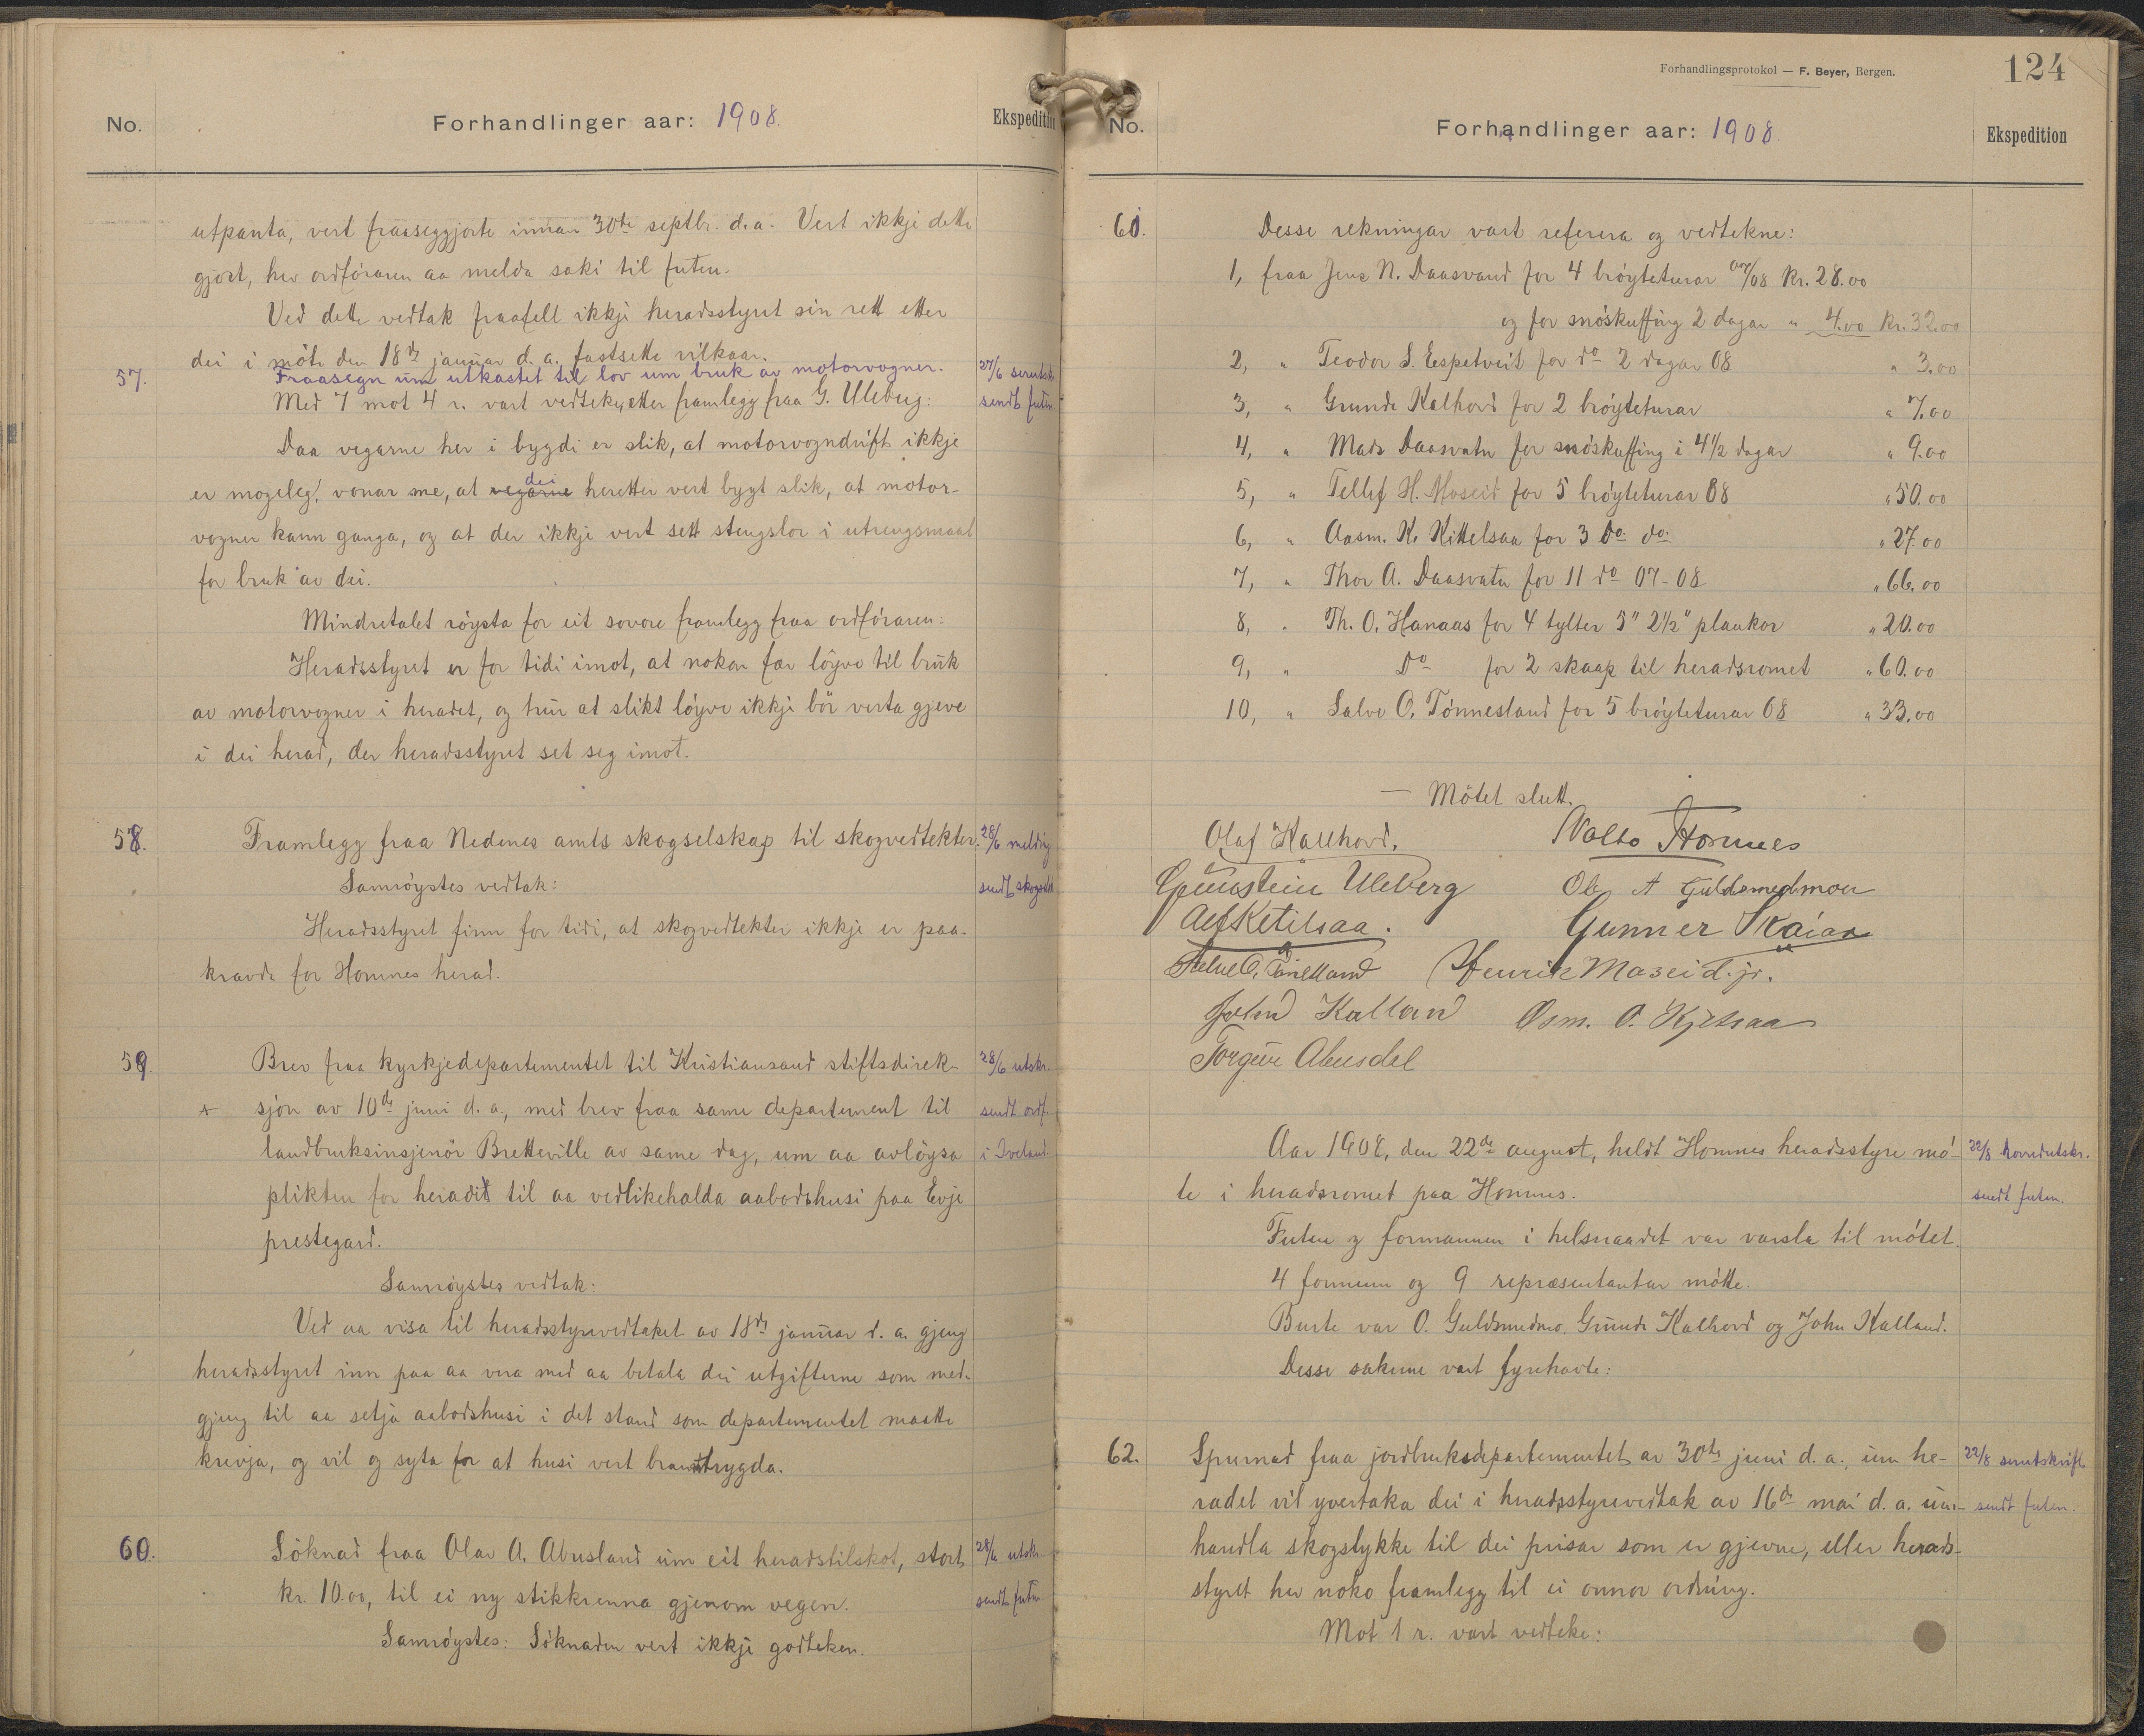 No.
Forhandlinger aar: 1908.
Ekspedition
utpanta, vert fraaseggjorte innan 30te septbr. d.a. Vert ikkje dette
gjort, hev ordföraren aa melda saki til futen.
Ved dette vedtak fraafell ikkji heradsstyret sin rett etter
dei i möte den 18de januar d. a. fastsette vilkaar.
57.
Fraasegn um utkastet til lov um bruk av motorvogner.
27/6 serutskr.
Med 7 mot 4 r. vart vedteke, etter framlegg fraa G. Uleberg:
sendt futen
Daa vegarne her i bygdi er slik, at motorvogndrift ikkje
er mogeleg, vonar me, at vegarne dei heretter vert bygt slik, at motor-
vogner kann ganga, og at der ikkje vert sett stengslor i utrengsmaal
for bruk av dei.
Mindretalet röysta for eit sovore framlegg fraa ordföraren:
Heradsstyret er for tidi imot, at nokon fær löyve til bruk
av motorvogner i heradet, og trur at slikt löyve ikkje bör verta gjeve
i dei herad, der heradsstyret set seg imot.
58.
Framlegg fraa Nedenes amts skogselskap til skogvedtekter.
28/6 melding
Samröystes vedtak:
sendt skogselsk
Heradsstyret finn for tidi, at skogvedtekter ikkje er paa-
kravde for Hornnes herad.
59.
Brev fraa kyrkjedepartementet til Kristiansand stiftsdirek-
28/6 utskr.
sjon av 10de juni d. a., med brev fraa same departement til
sendt ordf.
landbruksinsjenör Bretteville av same dag, um aa avlöysa
i Iveland.
plikten for heradit til aa vedlikehalda aabodshusi paa Evje
prestegard.
Samröystes vedtak:
Ved aa visa til heradsstyrevedtaket av 18de januar d. a. gjeng
heradsstyret inn paa aa vera med aa betala dei utgifterne som med-
gjeng til aa setja aabodshusi i det stand som departementet maatte
krevja, og vil og syta for at husi vert branntrygda.
60.
Söknad fraa Olav A. Abusland um eit heradstilskot, stort
28/6 utskr.
kr. 10.00, til ei ny stikkrenna gjenom vegen.
sendt futen
Samröystes: Söknaden vert ikkje godteken.
Forhandlingsprotokol — F. Beyer, Bergen.
124
No.
Forhandlinger aar: 1908.
Ekspedition
61.
Desse rekningar vart referera og vedtekne:
1, fraa Jens N. Daasvand for 4 bröyteturar 07/08 Kr. 28.00
og for snöskuffing 2 dagar " 4.00 Kr. 32.00
2, " Teodor S. Espetveit for do 2 dagar 08 " 3.00
3, " Grunde Kalhovd for 2 bröyteturar " 7.00
4, " Mads Daasvatn for snöskuffing i 4 1/2 dagar " 9.00
5, " Tellef H. Moseid for 5 bröyteturar 08 " 50.00
6, " Aasm. K. Kittelsaa for 3 do. do. " 27.00
7, " Thor A. Daasvatn for 11 do 07-08 " 66.00
8, " Th. O. Hanaas for 4 tylter 5" 2 1/2" plankor " 20.00
9, " Do for 2 skaap til heradsromet " 60.00
10, " Salve O. Tönnesland for 5 bröyteturar 08 " 33.00
— Mötet slutt.
Olaf Kallhovd.
Nalto Hornnes
Gunnstein Uleberg
Ole A Guldsmedmoen
Alf Ketilsaa.
Gunner Skaiaa
Salve O. Tönnesland
Henrik Moseid. jr.
John Kalland
Osm. O. Kjetsaa
Torgeir Abusdal
Aar 1908, den 22de august, heldt Hornnes heradsstyre mö-
22/8 hovudutskr.
te i heradsromet paa Hornnes.
sendt futen.
Futen og formannen i helsraadet var varsla til mötet.
4 formenn og 9 repræsentantar mötte.
Burte var O. Guldsmedmo, Grunde Kalhovd og John Kalland.
Desse sakerne vart fyrehavte:
62.
Spurnad fraa jordbruksdepartementet av 30te juni d. a., um he-
22/8 serutskrift
radet vil yvertaka dei i heradsstyrevedtak av 16de mai d. a. um-
sendt futen.
handla skogstykke til dei prisar som er gjevne, eller herads-
styret hev noko framlegg til ei onnor ordning.
Mot 1 r. vart vedteke: